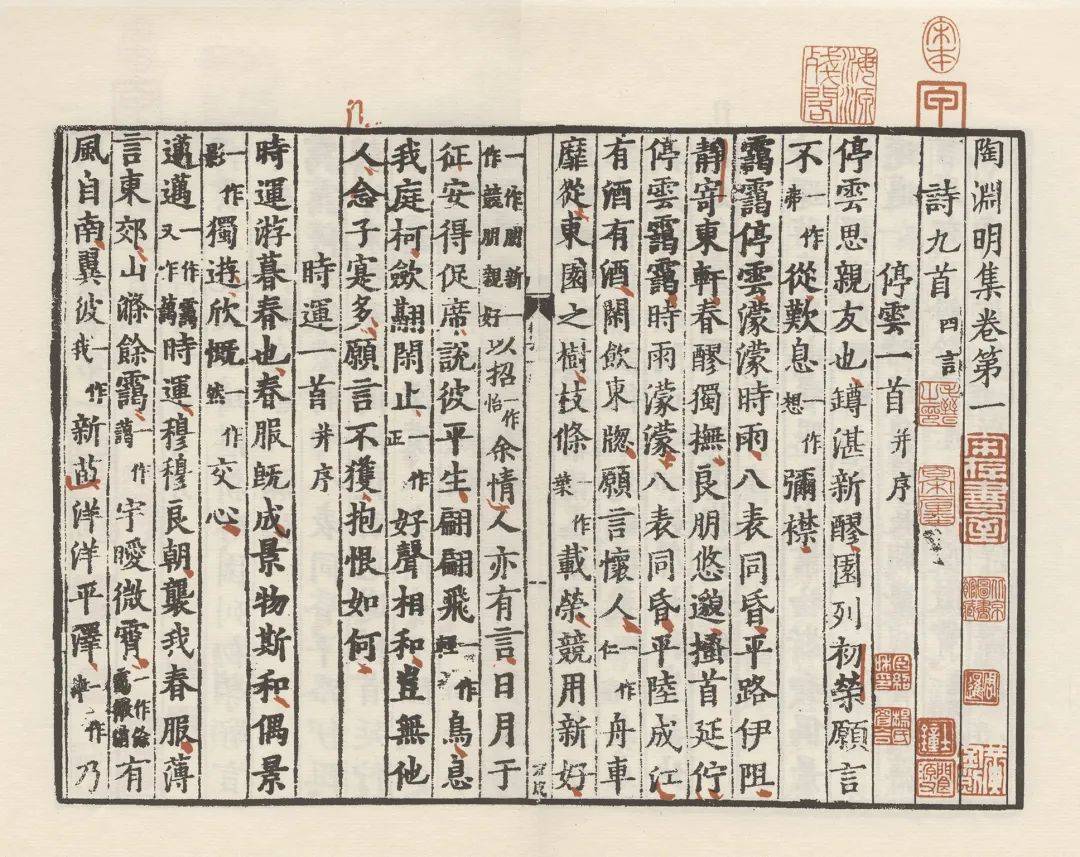 宋本
海源殘閣
陶淵明集卷第一
宋存書室
詩九首 四言
停雲一首 并序
停雲思親友也罇湛新醪園列初榮願言
不一作弗從歎息一作想彌襟
靄靄停雲濛濛時雨八表同昏平路伊阻
靜寄東軒春醪獨撫良朋悠邈搔首延佇
停雲靄靄時雨濛濛八表同昏平陸成江
有酒有酒閑飲東牎願言懷人一作仁舟車
靡從東園之樹枝條一作葉載榮競用新好
一作新一作競朋親好以招一作怡余情人亦有言日月于
征安得促席說彼平生翩翩飛一作輕鳥息
我庭柯斂翮閑止一作正好聲相和豈無他
人念子寔多願言不獲抱恨如何
時運一首 并序
時運游暮春也春服既成景物斯和偶景
一作影獨遊欣慨一作然交心
邁邁一作靄又作時運穆穆良朝襲我春服薄
言東郊山滌餘靄一作藹宇曖微霄一作餘靄微消有
風自南翼彼一作我新苗洋洋平澤一作津乃